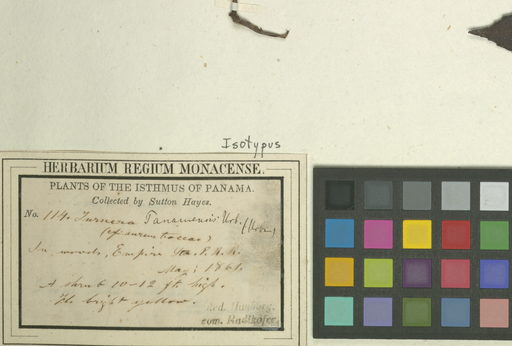 Isotypus
HERBARIUM REGIUM MONACENSE.
PLANTS OF THE ISTHMUS OF PANAMA.
Collected by Sutton Hayes.
No. 114. Turnera Panamensis Urb. (Urban)
In woods, Empire Sta. P. R. R.
May, 1861.
A shrub 10-12 ft. high.
Fls. bright yellow.
com. Radlkofer